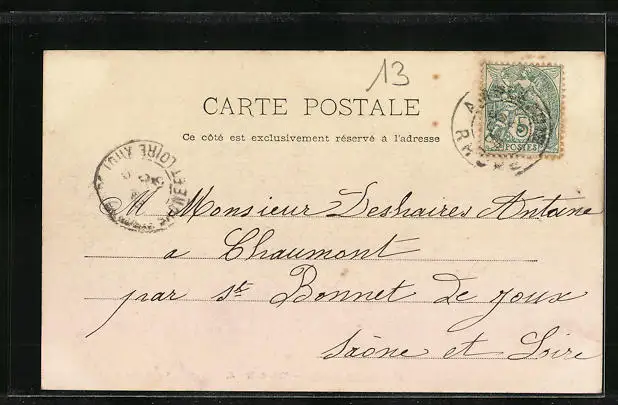 13
CARTE POSTALE
Ce côté est exclusivement réservé à l'adresse
5
POSTES
LOIRE
M. Monsieur Deshaires Antoine
a Chaumont
par St. Bonnet de joux
Saône et Loire